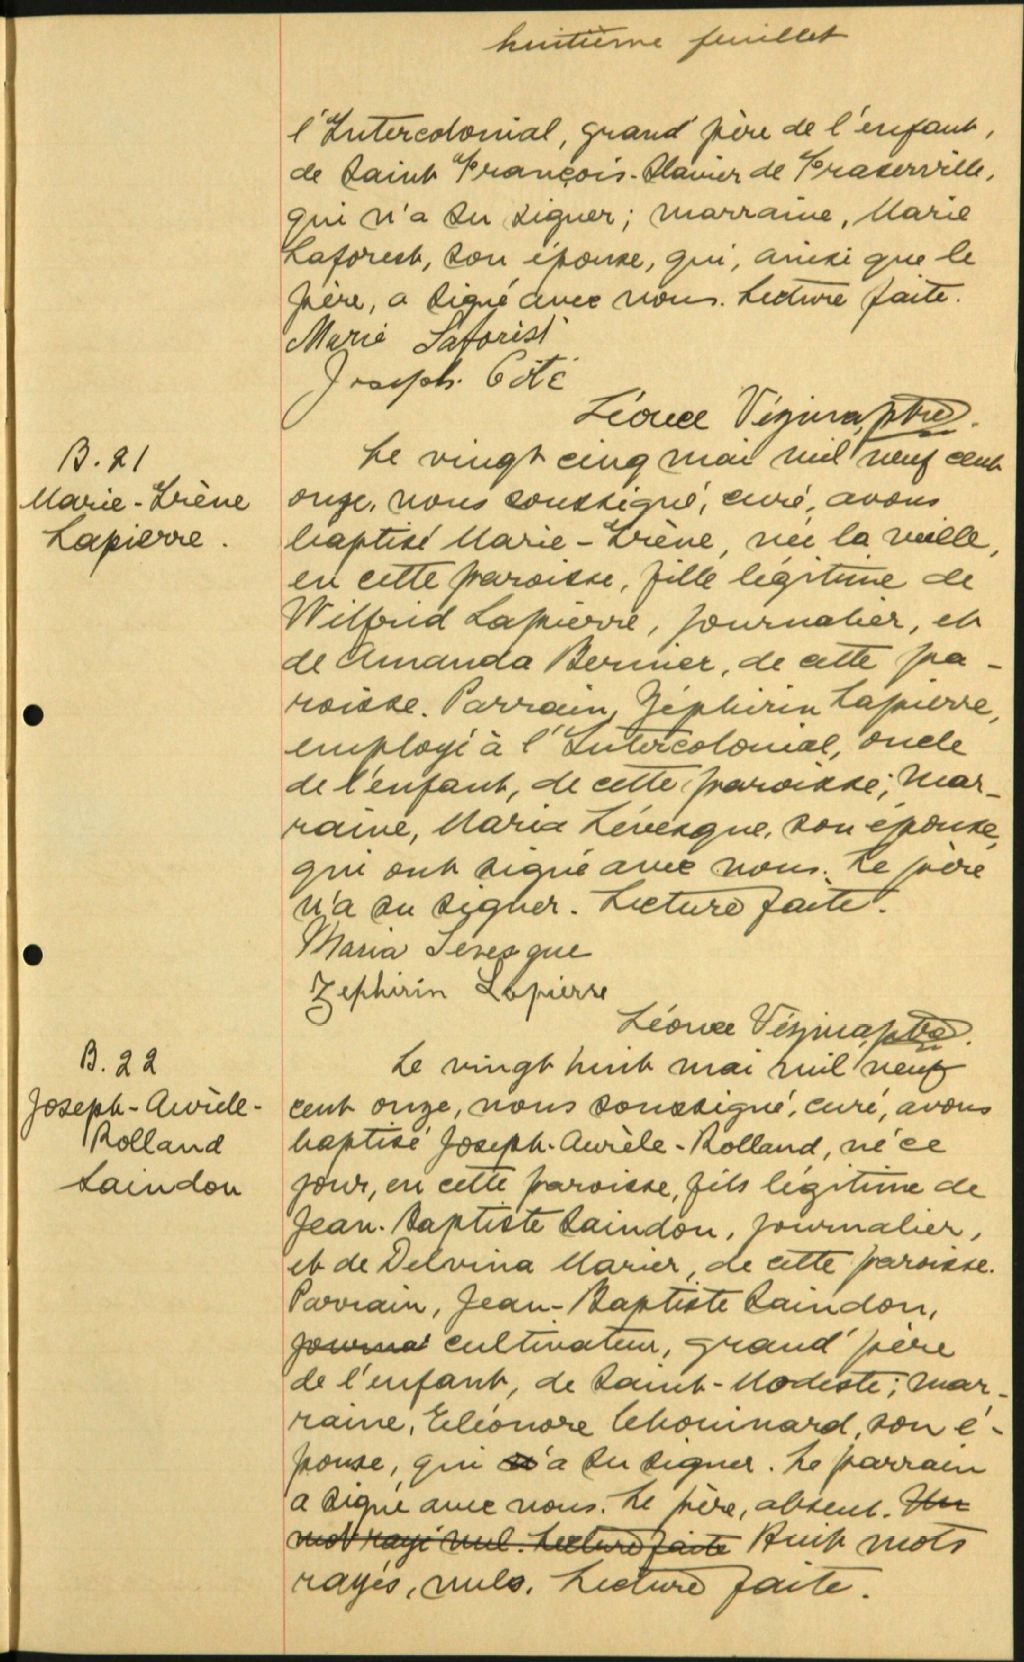 huitième feuillet
l'Intercolonial, grand'père de l'enfant,
de Saint François-Xavier de Fraserville,
qui n'a su signer; marraine, Marie
Laforest, son épouse, qui, ainsi que le
père, a signé avec nous. Lecture faite.
Marie Laforest
Joseph Coté
Léonce Vézina, ptre.
B. 21
Marie-Irène
Lapierre.
Le vingt cinq mai mil neuf cent
onze, nous soussigné, curé, avons
baptisé Marie-Irène, née la veille,
en cette paroisse, fille légitime de
Wilfrid Lapierre, journalier, et
de Amanda Bernier, de cette pa-
roisse. Parrain, Zéphirin Lapierre,
employé à l'Intercolonial, oncle
de l'enfant, de cette paroisse; mar-
raine, Maria Lévesque, son épouse,
qui ont signé avec nous. Le père
n'a su signer. Lecture faite.
Maria Levesque
Zephirin Lapierre
Léonce Vézina, ptre.
B. 22
Joseph-Aurèle-
Rolland
Saindon
Le vingt huit mai mil neuf
cent onze, nous soussigné, curé, avons
baptisé Joseph-Aurèle-Rolland, né ce
jour, en cette paroisse, fils légitime de
Jean-Baptiste Saindon, journalier,
et de Delvina Marier, de cette paroisse.
Parrain, Jean-Baptiste Saindon,
journal cultivateur, grand'père
de l'enfant, de Saint-Modeste; mar-
raine, Eléonore Chouinard, son é-
pouse, qui n'a su signer. Le parrain
a signé avec nous. Le père, absent. Un
mot rayé nul. Lecture faite Huit mots
rayés, nuls. Lecture faite.